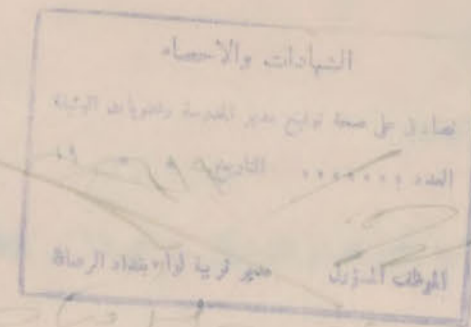 الشهادات والاحصاء
نصادق على صحة توقيع مدير المدرسة ومحتويات الوثيقة
العدد التاريخ
الموظف المسؤول مدير تربية لواء بغداد الرصافة